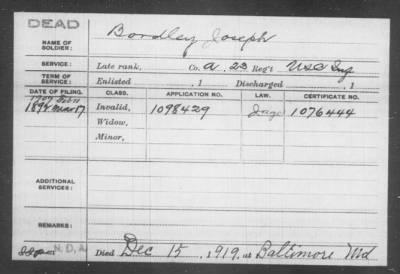 DEAD
NAME OF SOLDIER: Bordley Joseph
SERVICE: Late rank, Co. A. 23 Reg't USC Inf
TERM OF SERVICE: Enlisted , 1 Discharged , 1
DATE OF FILING. CLASS. APPLICATION NO. LAW. CERTIFICATE NO.
1907 Feb 11
Invalid, 1098429 1076444
Widow,
Minor,
ADDITIONAL SERVICES:
REMARKS:
N.D.A. Died Dec 15, 1919, at Baltimore Md